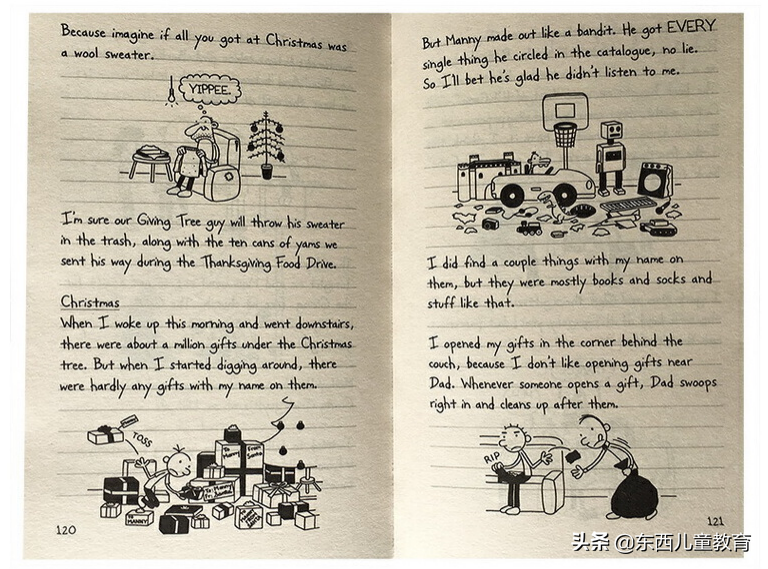 Because imagine if all you got at Christmas was
a wool sweater.
YIPPEE.
I'm sure our Giving Tree guy will throw his sweater
in the trash, along with the ten cans of yams we
sent his way during the Thanksgiving Food Drive.
Christmas
When I woke up this morning and went downstairs,
there were about a million gifts under the Christmas
tree. But when I started digging around, there
were hardly any gifts with my name on them.
TOSS
To Manny
From Santa
TO MANNY
120
But Manny made out like a bandit. He got EVERY
single thing he circled in the catalogue, no lie.
So I'll bet he's glad he didn't listen to me.
I did find a couple things with my name on
them, but they were mostly books and socks and
stuff like that.
I opened my gifts in the corner behind the
couch, because I don't like opening gifts near
Dad. Whenever someone opens a gift, Dad swoops
right in and cleans up after them.
RIP
121
头条 @东西儿童教育